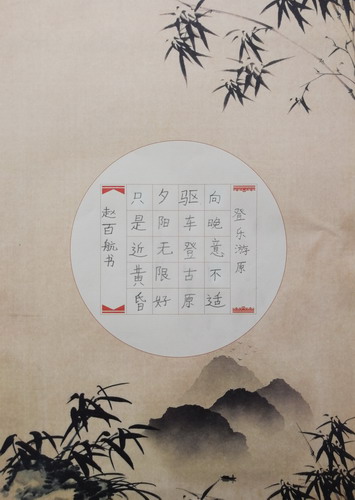 登乐游原
向晚意不适
驱车登古原
夕阳无限好
只是近黄昏
赵百航书